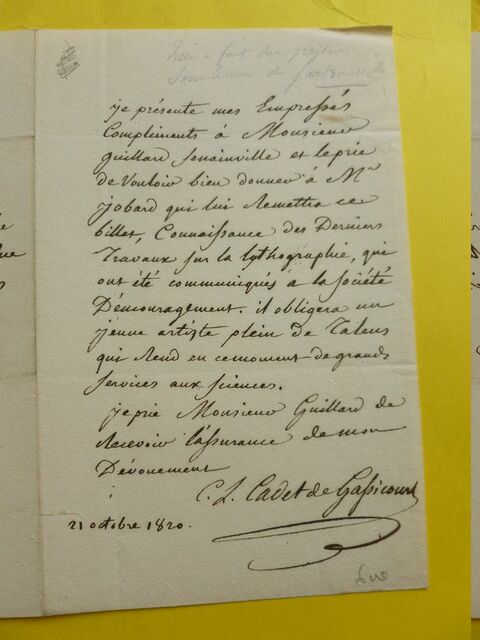 je présente mes Empressés
Compliments à Monsieur
Guillard Senainville et le prie
de Vouloir bien donner à Mr
jobard qui lui Remettra ce
billet, Connaissance des Derniers
Travaux sur la lythographie, qui
ont été communiqués à la Société
Démouragement. il obligera un
jeune artiste plein de Talens
qui Rend en ce moment de grands
Services aux sciences.
je prie Monsieur Guillard de
Recevoir l'assurance de mon
Dévouement
C. L. Cadet de Gassicourt
21 octobre 1820.